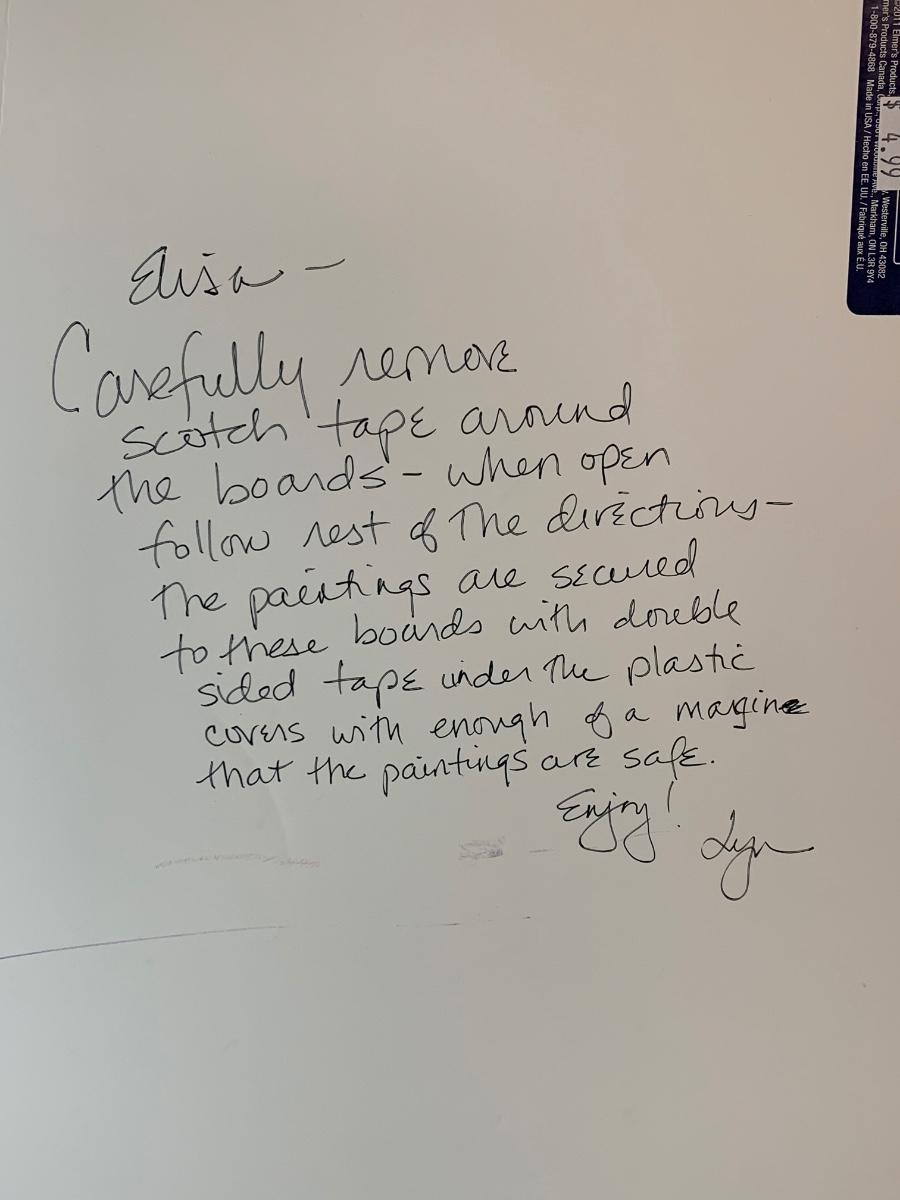 Elisa –
Carefully remove
scotch tape around
the boards – when open
follow rest of the directions –
the paintings are secured
to these boards with double
sided tape under the plastic
covers with enough of a margin
that the paintings are safe.
Enjoy!
Lyn
2011 Elmer's Products,
mer's Products Canada, Corp., Woodbine Ave., Markham, ON L3R 9Y4
Westerville, OH 43082
1-800-879-4868 Made in USA / Hecho en EE. UU. / Fabriqué aux É.U.
$ 4.99